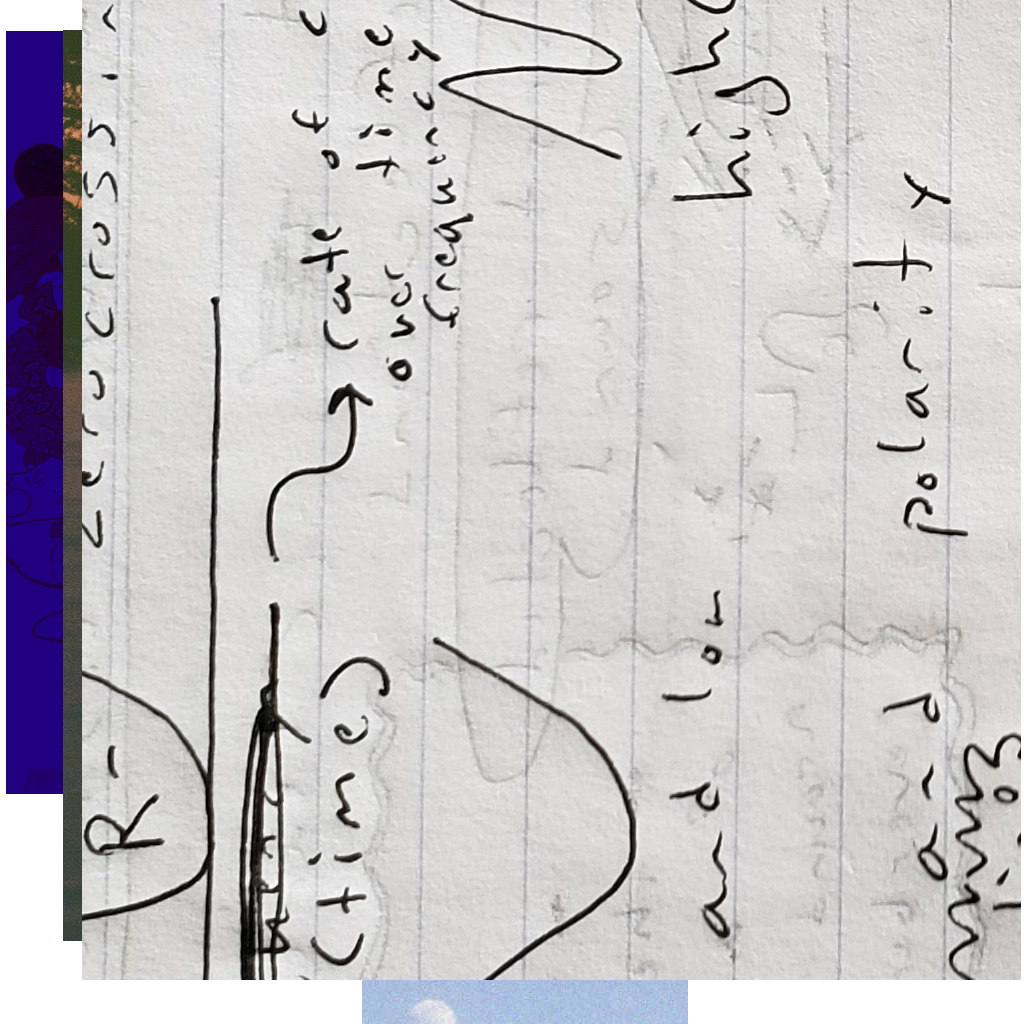 zero crossin
R-
rate of c
over time
(time)
frequency
and low high
and polarity